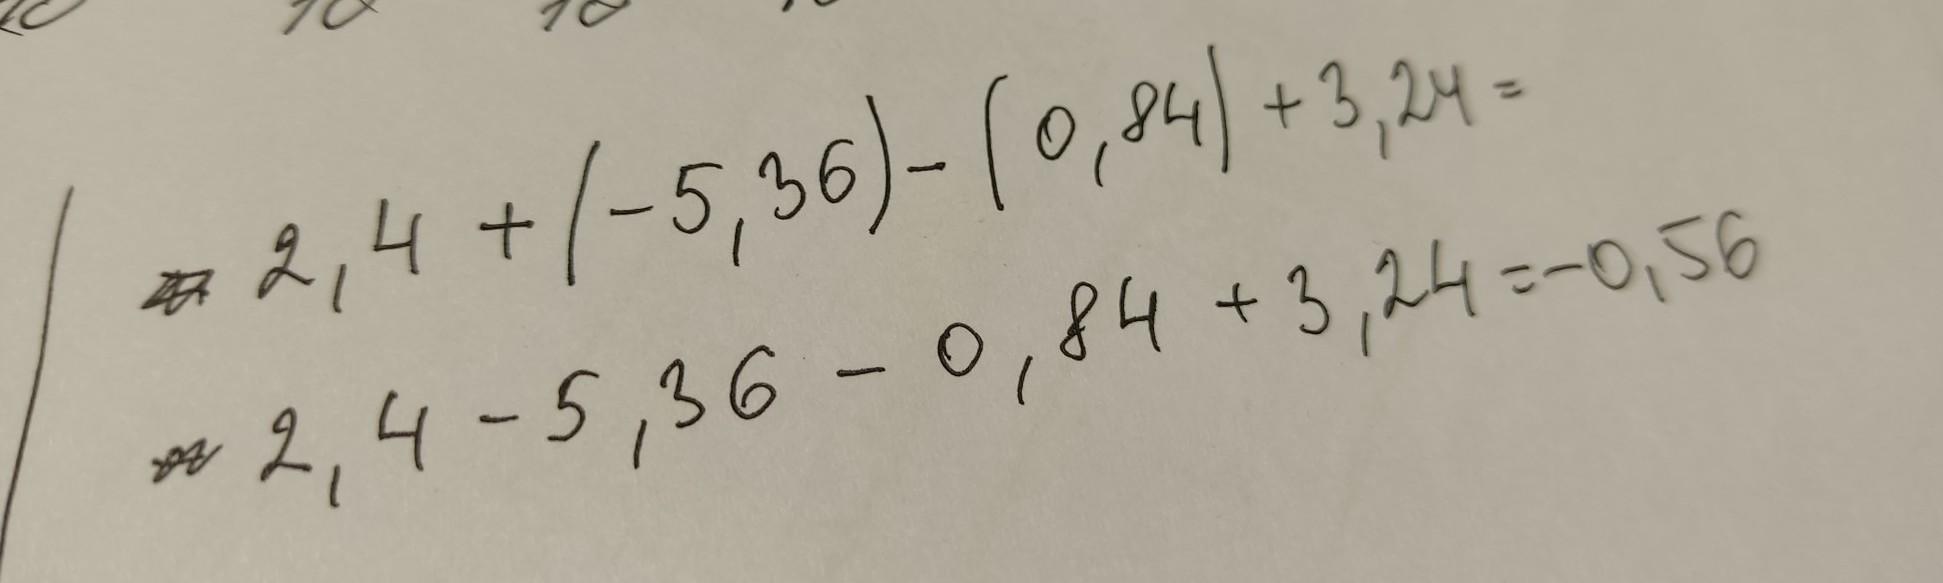 2,4 + (-5,36) - (0,84) + 3,24 =
2,4 - 5,36 - 0,84 + 3,24 = -0,56